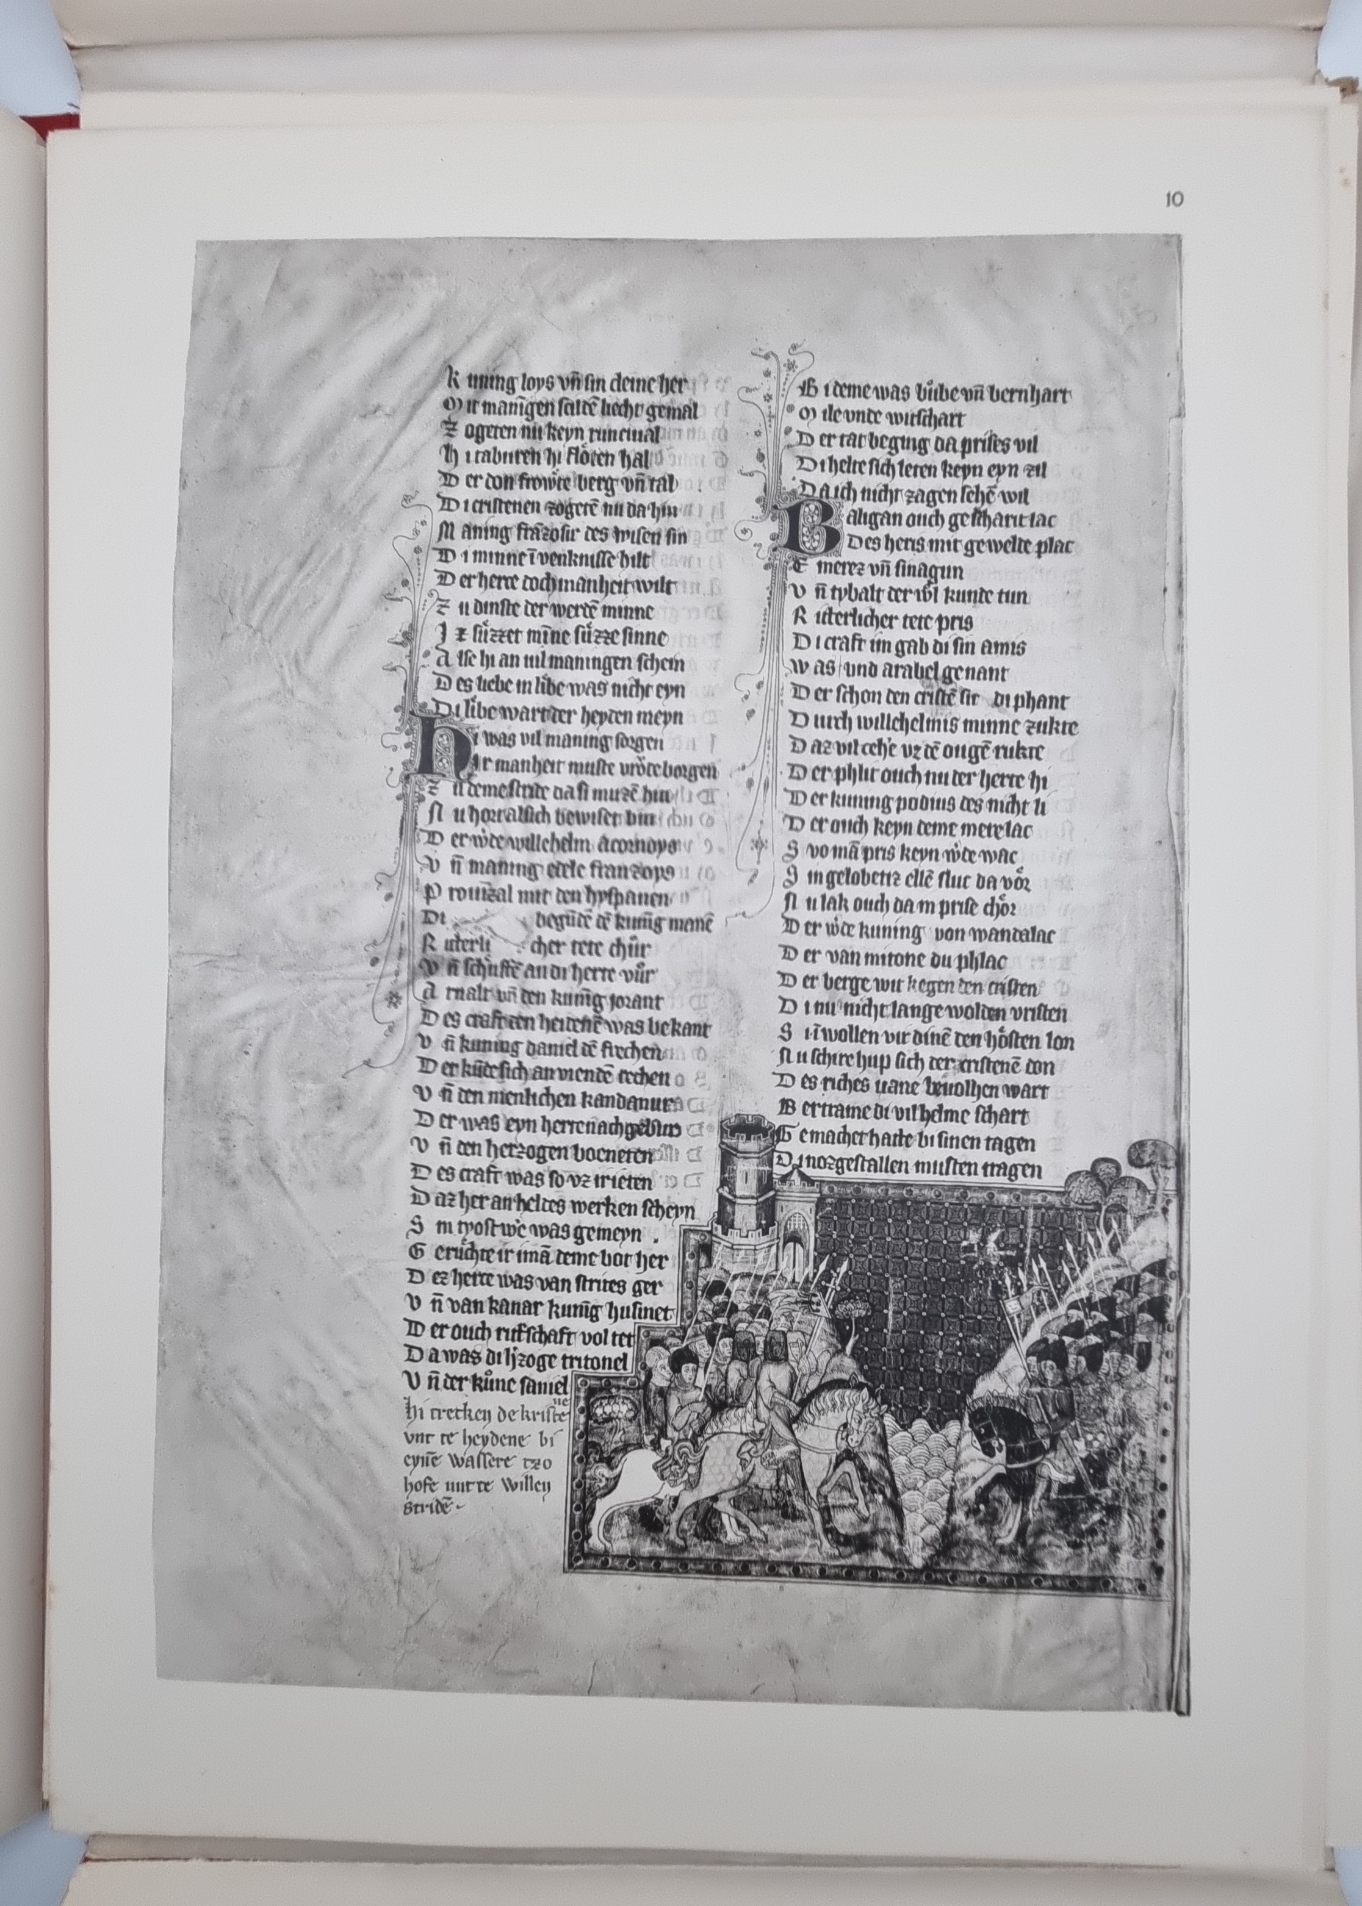 10
Kuning loys vn̄ sin cleine her
Mit manīgen scildē liecht gemal
Zogeten nu keyn runcinal
Hi taburen hi flöten hal
Der don frowͤte berg vn̄ tal
Di cristenen zogetē nu da hin
Maning frāzosir des wisen sin
Di minne ī venknisse hilt
Der herre doch manheit wilt
Zu dinste der werdē minne
Ir sůzzet mīne sůzze sinne
Alse hi an uil maningen schein
Des liebe in libe was nicht eyn
Di libe wart der heyden meyn
Hi was vil maning sorgen
Ir manheit muste vrōde borgen
Zu deme stride da si muzē hin
Nu hort als ich bewiset bin
Der wͤde willehelm acornoys
Vn̄ maning edele franzoys
Prouīzal mit den hyspanen
Di begūdē dē kunīg manē
Ritterlicher tete chůr
Vn̄ schufftē an di herte vůr
Arnalt vn̄ den kunīg jorant
Des craft den heidenē was bekant
Vn̄ kuning daniel dē frechen
Der kūde sich an viendē rechen
Vn̄ den menlichen kandanur
Der was eyn herre nachgebur
Vn̄ den herzogen boeneten
Des craft was so vz irieten
Daz her an heldes werken scheyn
Sin tyost wͤe was gemeyn .
Geruͤchte ir imā deme bot her
Dez herte was van strites ger
Vn̄ van kanar kunīg husinet
Der ouch rit'schaft vol tet
Da was di h'zoge tritonel
Vn̄ der kůne samel
hi trecken de kristenē
vnt te heydene bi
eynē wassere tzo
hofe unt te willen
stridē
Bi deme was bůbe vn̄ bernhart
Mile vnde witschart
Der tat beging da prises vil
Di helte sich leten keyn eyn zil
Da ich nicht zagen sehē wil
Baligan ouch gescharit lac
Des heris mit gewelde plac
Emerez vn̄ sinagun
Vn̄ tybalt der wͦl kunde tun
Ritterlicher tete pris
Di craft im gab di sin amis
Was vnd arabel genant
Der schon den cristē sit di phant
Durch willehelmis minne zukte
Daz vil cehe vz dē ougē rukte
Der phlit ouch nu der herre hi
Der kuning podius des nicht li
Der ouch keyn deme mere lac
Swo mā pris keyn wͤde wac
Sin gelobetiz ellē sluc da vör
Nu lak ouch da in prise chör
Der wͤde kuning von wandalac
Der van mitone du phlac
Der berge wit kegen den cristen
Di nu nicht lange wolden vristen
Si wollen vir dinē den hösten lon
Nu schire hup sich der cristenē don
Des riches uane bevolhen wart
Bertrame di vil helme schart
Gemachet hatte bi sinen tagen
Di norgestallen musten tragen